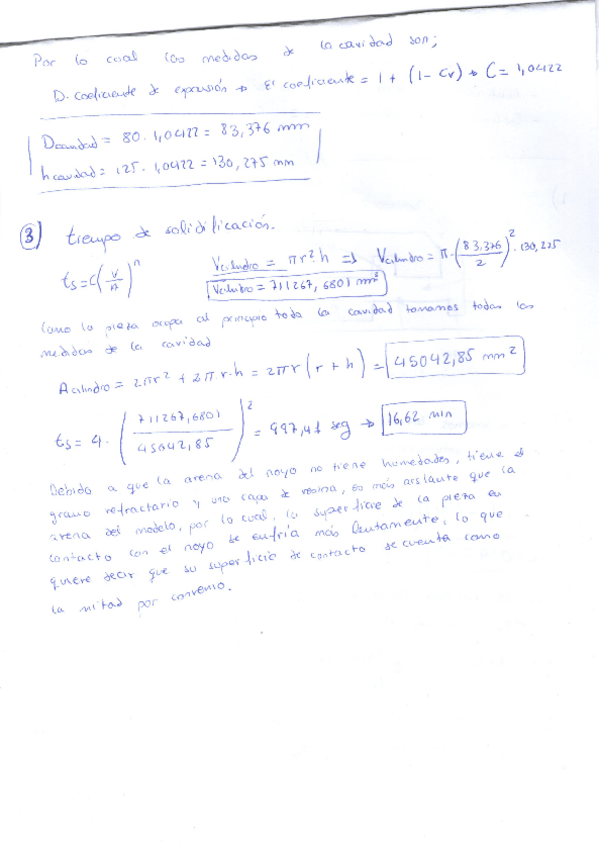 Por lo cual las medidas de la cavidad son;
D. coeficiente de expansión → El coeficiente = 1 + (1 - Cv) → C = 1,04122
Dcavidad = 80 · 1,04122 = 83,376 mm
hcavidad = 125 · 1,04122 = 130,275 mm
3) tiempo de solidificación.
ts = C(V/A)^n
Vcilindro = πr²h => Vcilindro = π·(83,376/2)²·130,275
Vcilindro = 711267,6801 mm³
Como la pieza ocupa al principio toda la cavidad tomamos todas las
medidas de la cavidad
Acilindro = 2πr² + 2π·r·h = 2πr(r + h) = 45042,85 mm²
ts = 4·(711267,6801/45042,85)² = 997,41 seg → 16,62 min
Debido a que la arena del noyo no tiene humedades, tiene el
grano refractario y una capa de resina, es más aislante que la
arena del modelo, por lo cual, la superficie de la pieza en
contacto con el noyo se enfría más lentamente, lo que
quiere decir que su superficie de contacto se cuenta como
la mitad por convenio.